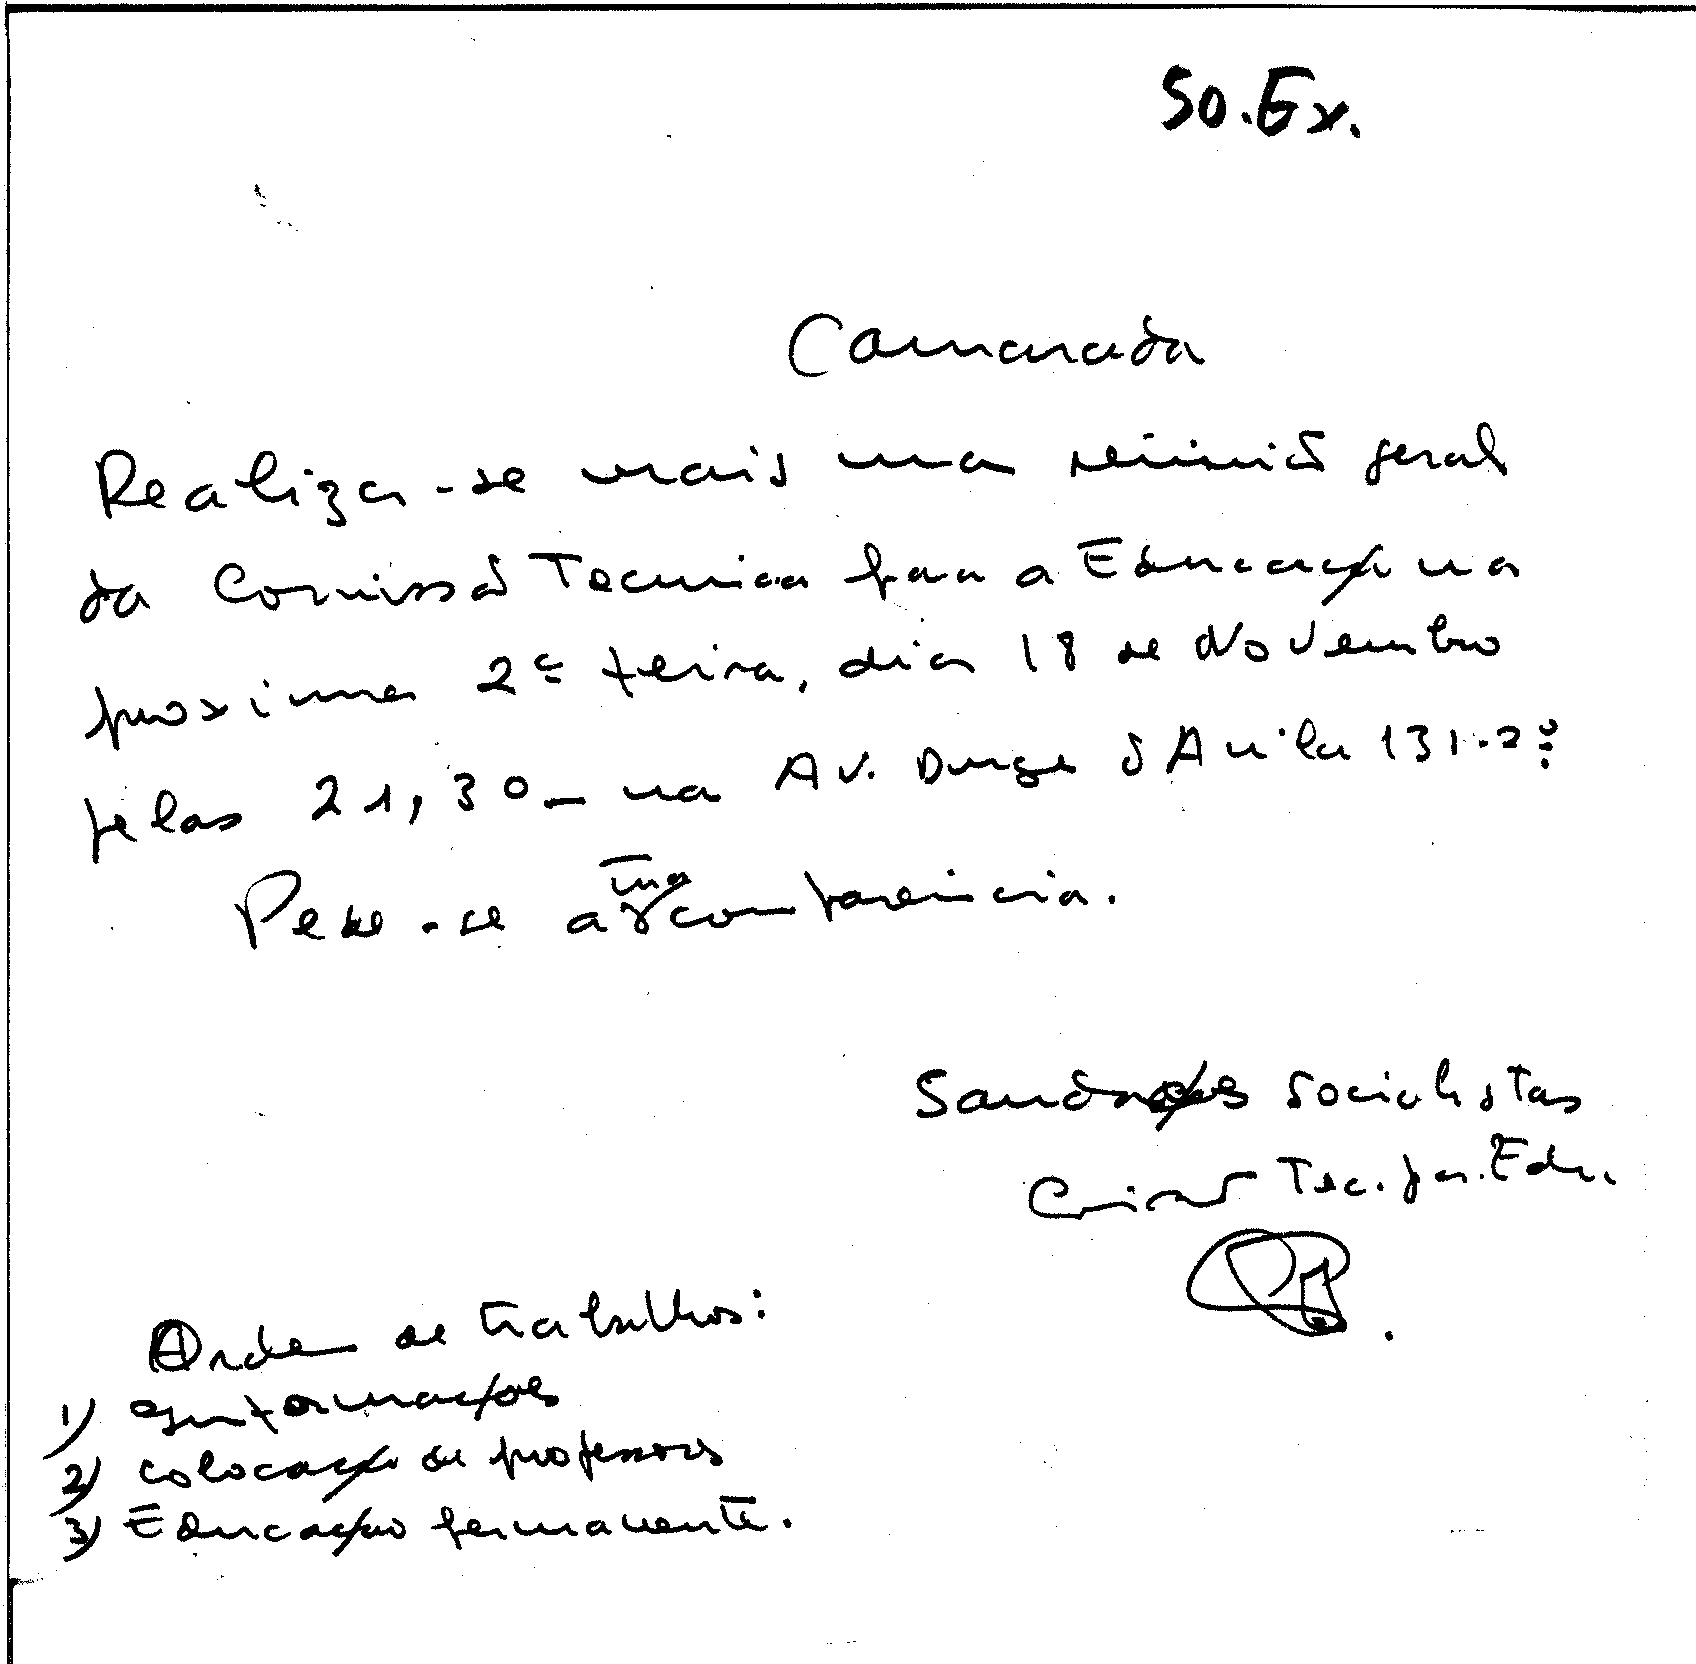 50.Ex.
Camarada
Realiza-se mais uma reunião geral
da Comissão Tecnica para a Educação na
proxima 2ª feira, dia 18 de Novembro
pelas 21,30 - na Av. Duque d'Avila 131-2º
Pede-se a tua comparencia.
Saudações Socialistas
Comissão Tec. par. Edu.
Ordem de trabalhos:
1) Informações
2) colocação de professores
3) Educação permanente.